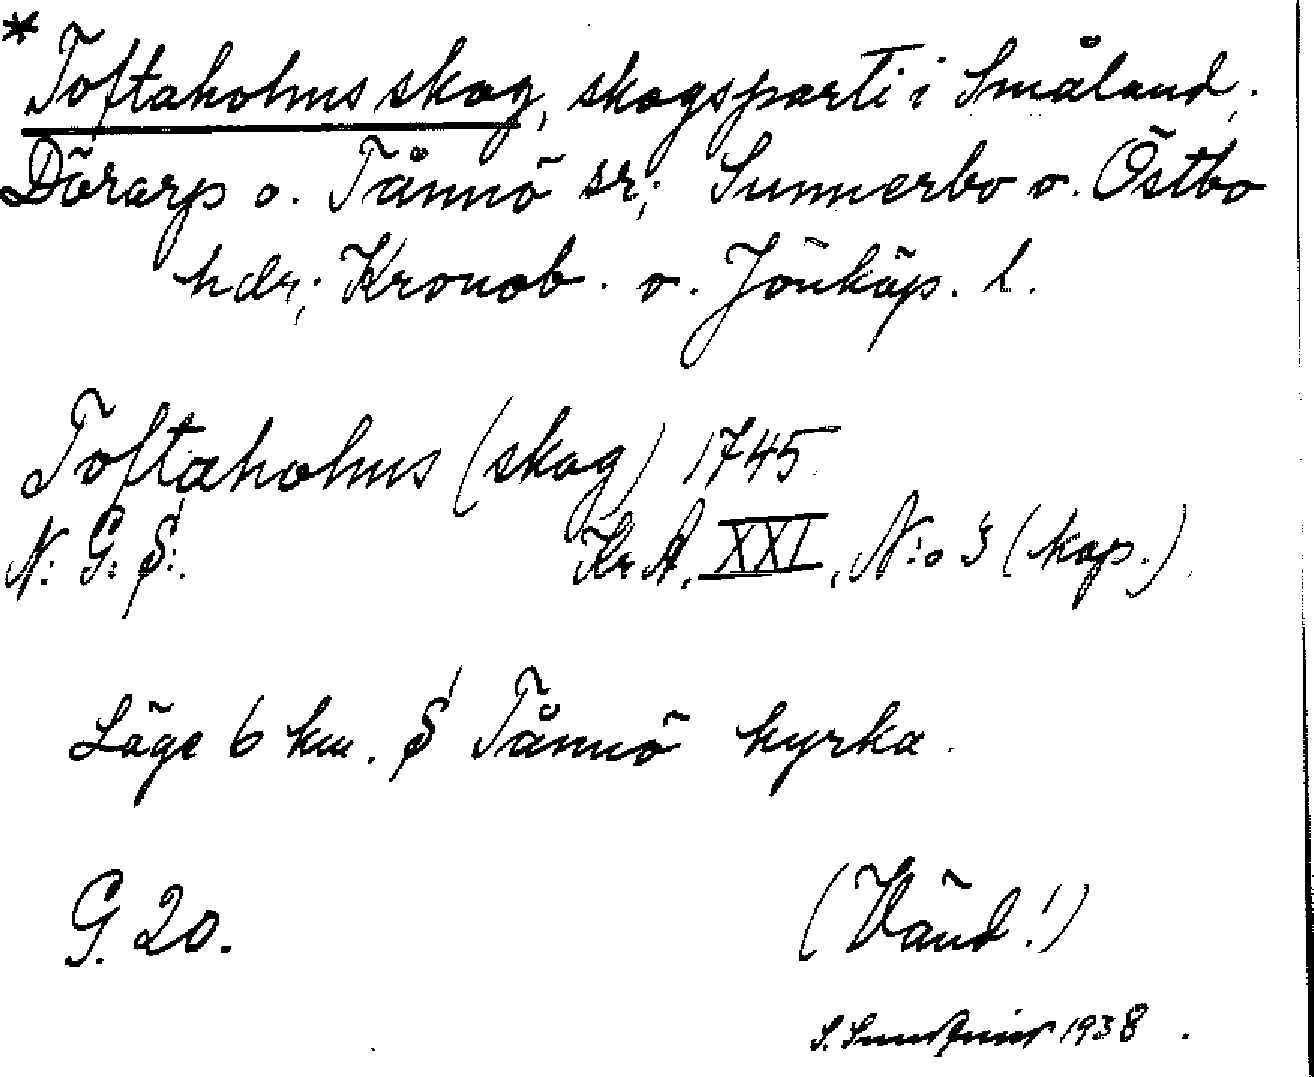 * Toftaholms skog, skogsparti i Småland.
Dörarp o. Tånnö sr; Sunnerbo o. Östbo
hdr; Kronob. o. Jönköp. l.
Toftaholms (skog) 1745
N: G: S:. Kr. A. XXI, N:o 3 (kop.)
Läge 6 km. S Tånnö kyrka.
G. 20. (Vänd!)
S. 1938.